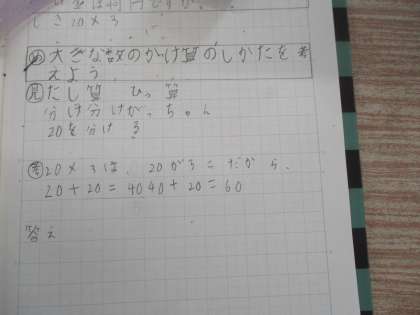 は何円ですか。
しき20×3
め 大きな数のかけ算のしかたを考
えよう
見 たし算 ひっ算
分け分けがっちゃん
20を分ける
考 20×3は、20が3こだから、
20+20=40 40+20=60
答え